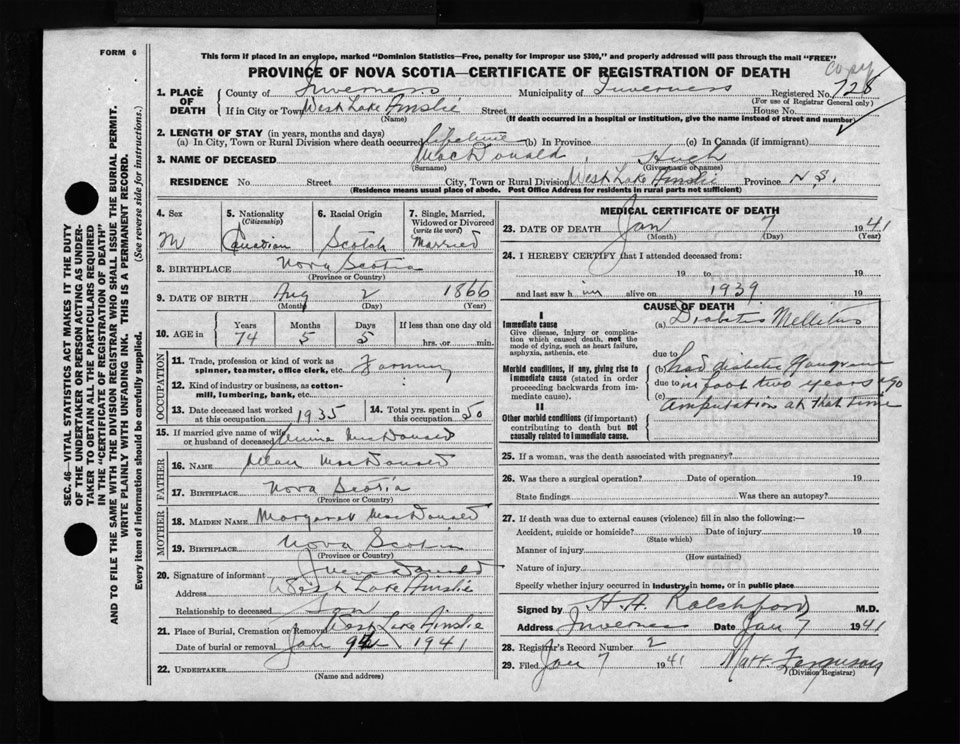 FORM 6
This form if placed in an envelope, marked "Dominion Statistics—Free, penalty for improper use $300," and properly addressed will pass through the mail "FREE"
copy
PROVINCE OF NOVA SCOTIA—CERTIFICATE OF REGISTRATION OF DEATH
1. PLACE OF DEATH County of Inverness Municipality of Inverness Registered No. 728
(For use of Registrar General only)
If in City or Town West Lake Ainslie Street House No.
(Name) (If death occurred in a hospital or institution, give the name instead of street and number)
2. LENGTH OF STAY (in years, months and days)
(a) In City, Town or Rural Division where death occurred lifetime (b) In Province (c) In Canada (if immigrant)
3. NAME OF DECEASED MacDonald, Hugh
(Surname) (Given name or names)
RESIDENCE No Street City, Town or Rural Division West Lake Ainslie Province N.S.
(Residence means usual place of abode. Post Office Address for residents in rural parts not sufficient)
SEC. 46—VITAL STATISTICS ACT MAKES IT THE DUTY
OF THE UNDERTAKER OR PERSON ACTING AS UNDER-
TAKER TO OBTAIN ALL THE PARTICULARS REQUIRED
IN THE "CERTIFICATE OF REGISTRATION OF DEATH"
AND TO FILE THE SAME WITH THE DIVISION REGISTRAR WHO SHALL ISSUE THE BURIAL PERMIT.
WRITE PLAINLY WITH UNFADING INK. THIS IS A PERMANENT RECORD.
Every item of information should be carefully supplied. (See reverse side for instructions.)
4. Sex M
5. Nationality (Citizenship) Canadian
6. Racial Origin Scotch
7. Single, Married, Widowed or Divorced (write the word) Married
8. BIRTHPLACE Nova Scotia
(Province or Country)
9. DATE OF BIRTH Aug 2 1866
(Month) (Day) (Year)
10. AGE in Years Months Days If less than one day old
74 5 5 hrs. or min.
OCCUPATION
11. Trade, profession or kind of work as
spinner, teamster, office clerk, etc. Farming
12. Kind of industry or business, as cotton-
mill, lumbering, bank, etc.
13. Date deceased last worked at this occupation 1935 14. Total yrs. spent in this occupation 50
15. If married give name of wife
or husband of deceased MacDonald
FATHER
16. NAME Allan MacDonald
17. BIRTHPLACE Nova Scotia
(Province or Country)
MOTHER
18. MAIDEN NAME Margaret MacDonald
19. BIRTHPLACE Nova Scotia
(Province or Country)
20. Signature of informant
Address West Lake Ainslie
Relationship to deceased Son
21. Place of Burial, Cremation or Removal West Lake Ainslie
Date of burial or removal Jan 9th 1941
22. UNDERTAKER
(Name and address)
MEDICAL CERTIFICATE OF DEATH
23. DATE OF DEATH Jan 7 1941
(Month) (Day) (Year)
24. I HEREBY CERTIFY that I attended deceased from:
19 to 19
and last saw him alive on 1939 19
CAUSE OF DEATH
I
Immediate cause
Give disease, injury or complica-
tion which caused death, not the
mode of dying, such as heart failure,
asphyxia, asthenia, etc
(a) Diabetis Mellitus
due to
Morbid conditions, if any, giving rise to
immediate cause (stated in order
proceeding backwards from im-
mediate cause).
(b) had diabetic Gangrene
due to in foot two years ago
(c) Amputation at that time
II
Other morbid conditions (if important)
contributing to death but not
causally related to immediate cause.
25. If a woman, was the death associated with pregnancy?
26. Was there a surgical operation? Date of operation 19
State findings Was there an autopsy?
27. If death was due to external causes (violence) fill in also the following:—
Accident, suicide or homicide? Date of injury 19
(State which)
Manner of injury
(How sustained)
Nature of injury
Specify whether injury occurred in industry, in home, or in public place
Signed by H. A. Ratchford M.D.
Address Inverness Date Jan 7 1941
28. Registrar's Record Number 2
29. Filed Jan 7 1941 Matt. Ferguson
(Division Registrar)